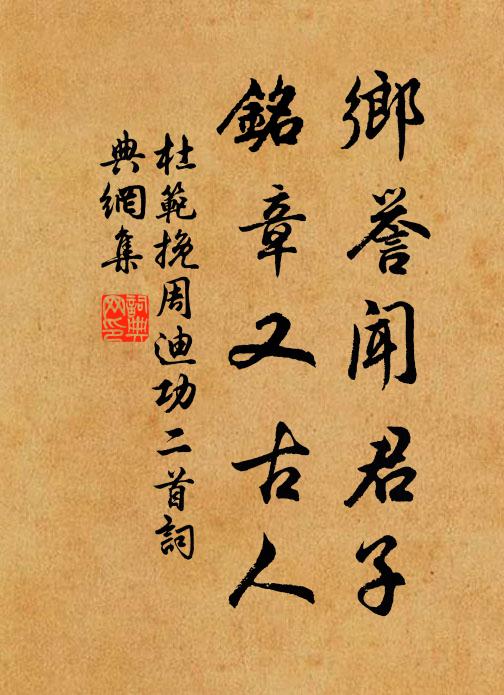 鄉譽聞君子
銘章又古人
杜範挽周迪功二首詞
典網集
詞典
网印